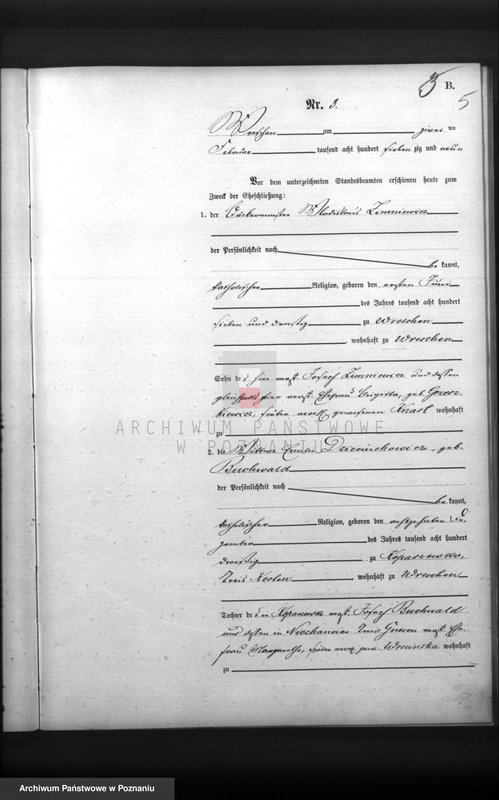 5 B.
5
Nr. 3.
Wreschen am zwei ten
Februar tausend acht hundert sieben zig und neun
Vor dem unterzeichneten Standesbeamten erschienen heute zum
Zweck der Eheschließung:
1. der Bäckermeister Wladislaus Zimniewicz
der Persönlichkeit nach
be kannt,
katholischer Religion, geboren den ersten Juni
des Jahres tausend acht hundert
sieben und dreißig zu Wreschen
, wohnhaft zu Wreschen
Sohn des hier verst. Joseph Zimniewicz und dessen
gleichfalls hier verst. Ehefrau Brigitta, geb.
früher gewesenen wohnhaft
zu
ARCHIWUM PAŃSTWOWE
W POZNANIU
2. die Wittwe Emilie Dzieciuchowicz, geb.
Buchwald
der Persönlichkeit nach
be kannt,
katholischer Religion, geboren den achtzehnten De
zember des Jahres tausend acht hundert
dreißig zu Kopaszewko,
Kreis Kosten wohnhaft zu Wreschen
Tochter des in verst. Joseph Buchwald
und dessen in Niechanowo Kreis Gnesen verst. Ehe
frau Margarethe, früher gew. Wroninska wohnhaft
zu
Archiwum Państwowe w Poznaniu